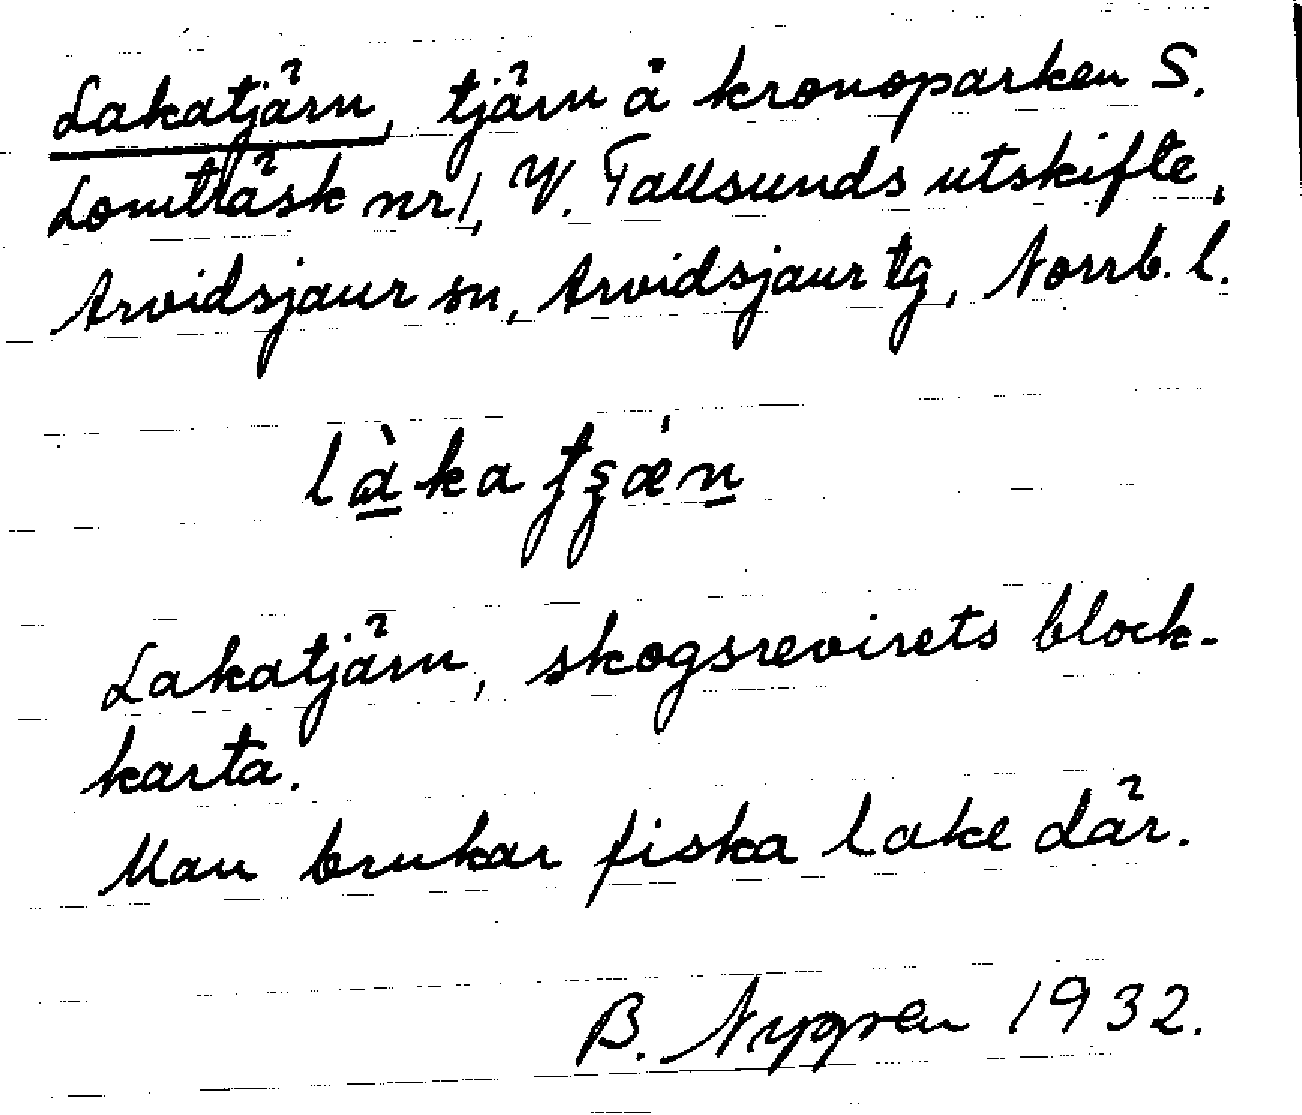 Lakatjärn, tjärn å kronoparken S.
Lomträsk nr 1, V. Tallsunds utskifte,
Arvidsjaur sn, Arvidsjaur tg, Norrb. l.
làka
Lakatjärn, skogsrevirets block-
karta.
Man brukar fiska lake där.
B. Nygren 1932.